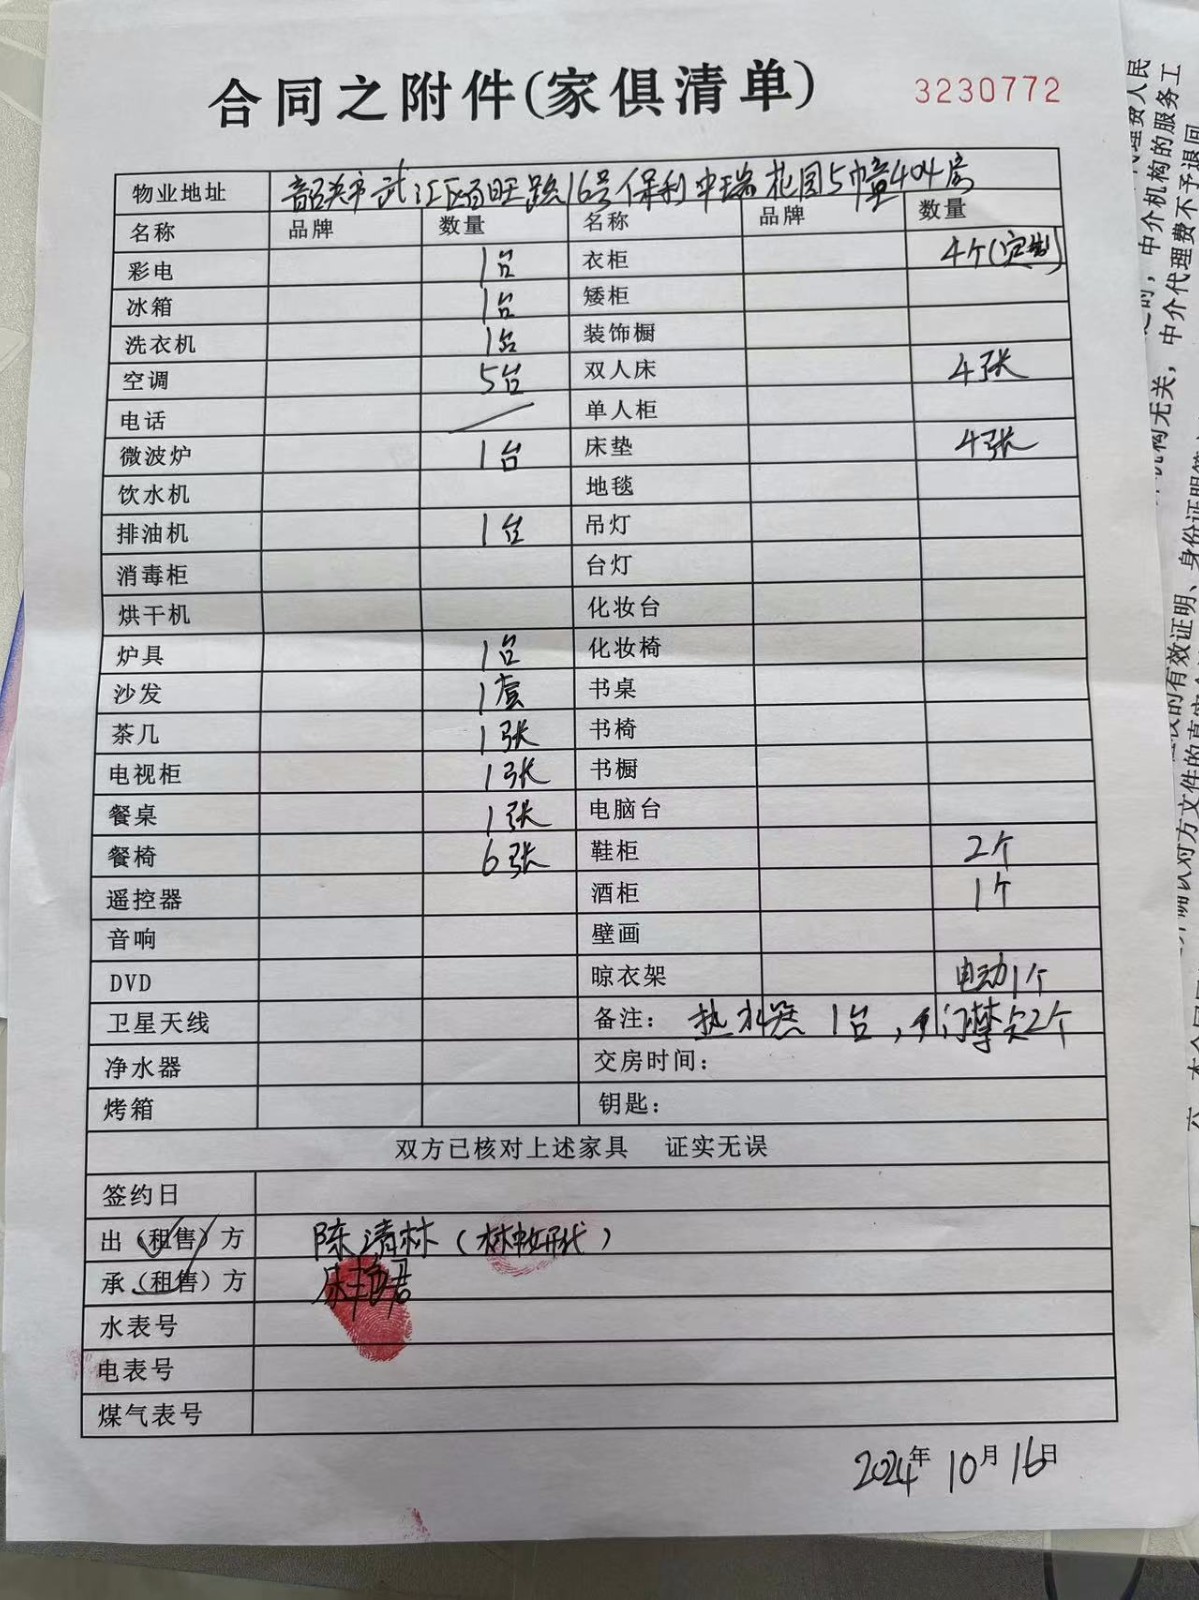 合同之附件(家俱清单)
3230772
物业地址 韶关市武江区百旺路16号保利中瑞花园5幢404房
名称 品牌 数量 名称 品牌 数量
彩电 1台 衣柜 4个(定制)
冰箱 1台 矮柜
洗衣机 1台 装饰橱
空调 5台 双人床 4张
电话 ／ 单人柜
微波炉 1台 床垫 4张
饮水机 地毯
排油机 1台 吊灯
消毒柜 台灯
烘干机 化妆台
炉具 1台 化妆椅
沙发 1套 书桌
茶几 1张 书椅
电视柜 1张 书橱
餐桌 1张 电脑台
餐椅 6张 鞋柜 2个
遥控器 酒柜 1个
音响 壁画
DVD 晾衣架 电动1个
卫星天线 备注： 热水器1台，门禁卡2个
净水器 交房时间：
烤箱 钥匙：
双方已核对上述家具 证实无误
签约日
出（租售）方 陈清林（林 代）
承（租售）方
水表号
电表号
煤气表号
2024年10月16日
中介机构的服务工
中介代理费不予退回
机构无关，
的有效证明、身份证明
确认对方文件的真